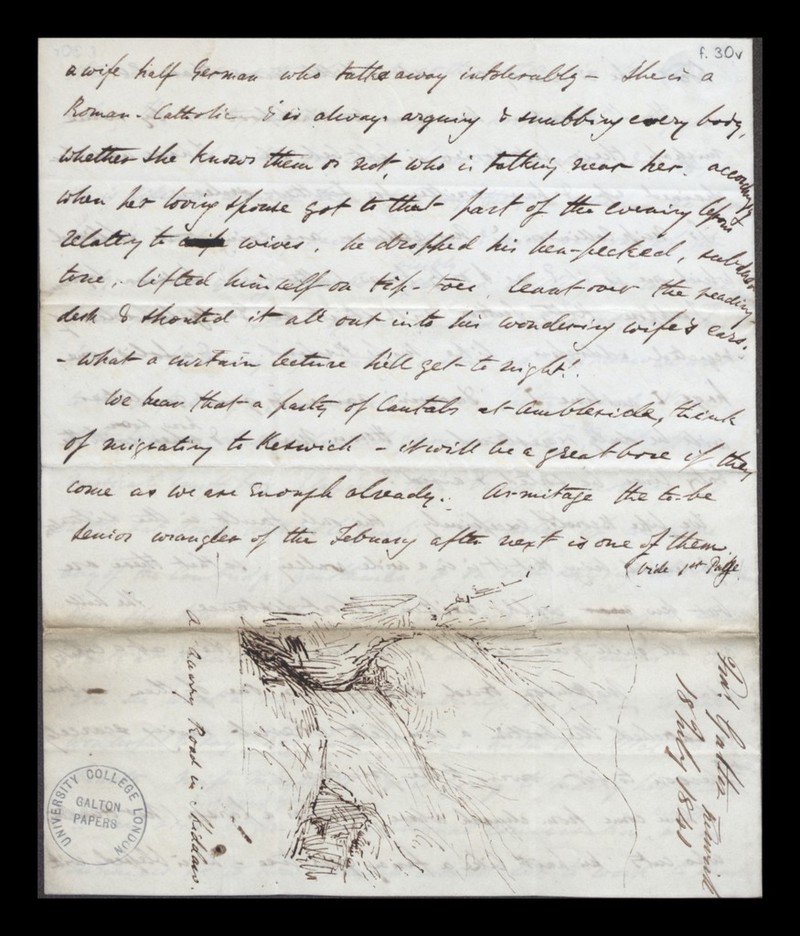 f. 30v
a wife half German who talks away intolerably - She is a
Roman-Catholic & is always arguing & snubbing every body,
whether she knows them or not, who is talking near her. accordingly
when her loving spouse got to that part of the evening lesson
relating to wives, he dropped his hen-pecked, subdued
tone, lifted himself on tip-toes, leant over the reading
desk & shouted it all out into his wondering wife's ears.
- what a curtain lecture he'll get to night!
We hear that a party of Cantabs at Ambleside, think
of migrating to Keswick - it will be a great bore if they
come as we are enough already. Armitage the to-be
senior wrangler of the Febuary after next is one of them.
(vide 1st Page.
A Quarry Road in Skiddaw.
Fras. Galton Keswick
18 July 1841
UNIVERSITY COLLEGE LONDON
GALTON
PAPERS